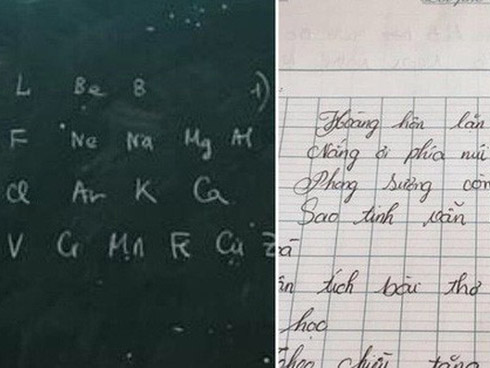 L Be B 1)
F Ne Na Mg Al
Cl Ar K Ca
V Cr Mn F Cu Z
Hoàng hôn lản
Nắng ơi phía núi
Phong sương còn
Sao tinh vẫn
ả
ân tích bài thơ
học
chiều tăng